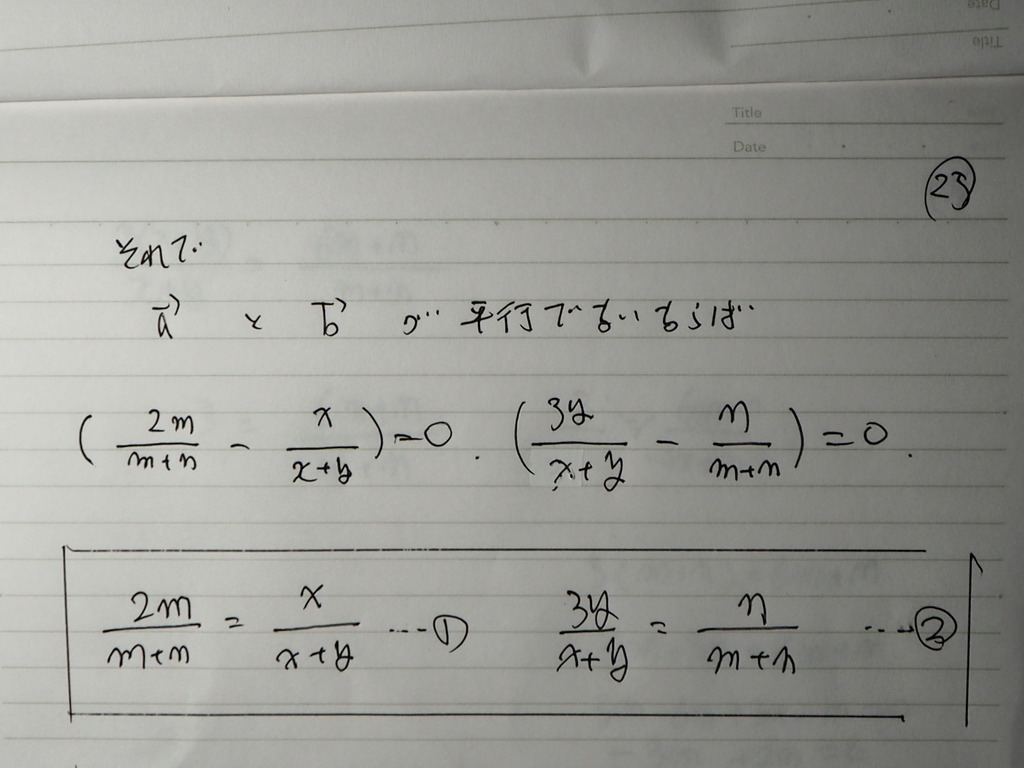 Date
Title
Title
Date
25
それで
a→ と b→ が 平行でないならば
(2m/(m+n) − x/(x+y)) = 0 . (3y/(x+y) − n/(m+n)) = 0 .
2m/(m+n) = x/(x+y) ----① 3y/(x+y) = n/(m+n) ----②